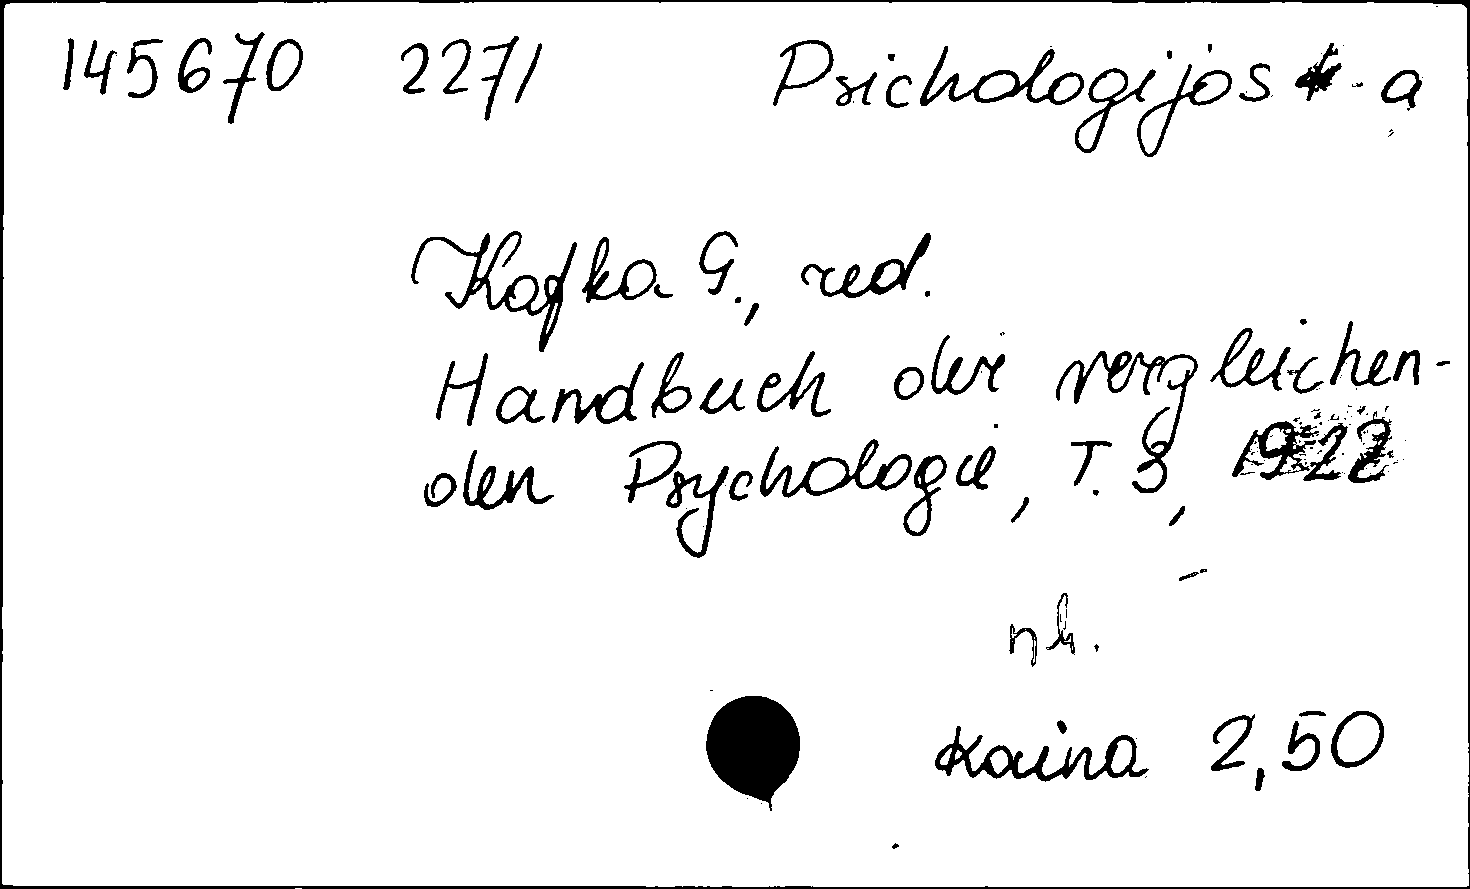 145670 2271 Psichologijos k-a
Kafka G., red.
Handbuch der vergleichen-
den Psychologie, T. 3, 1922
nh.
Kaina 2,50